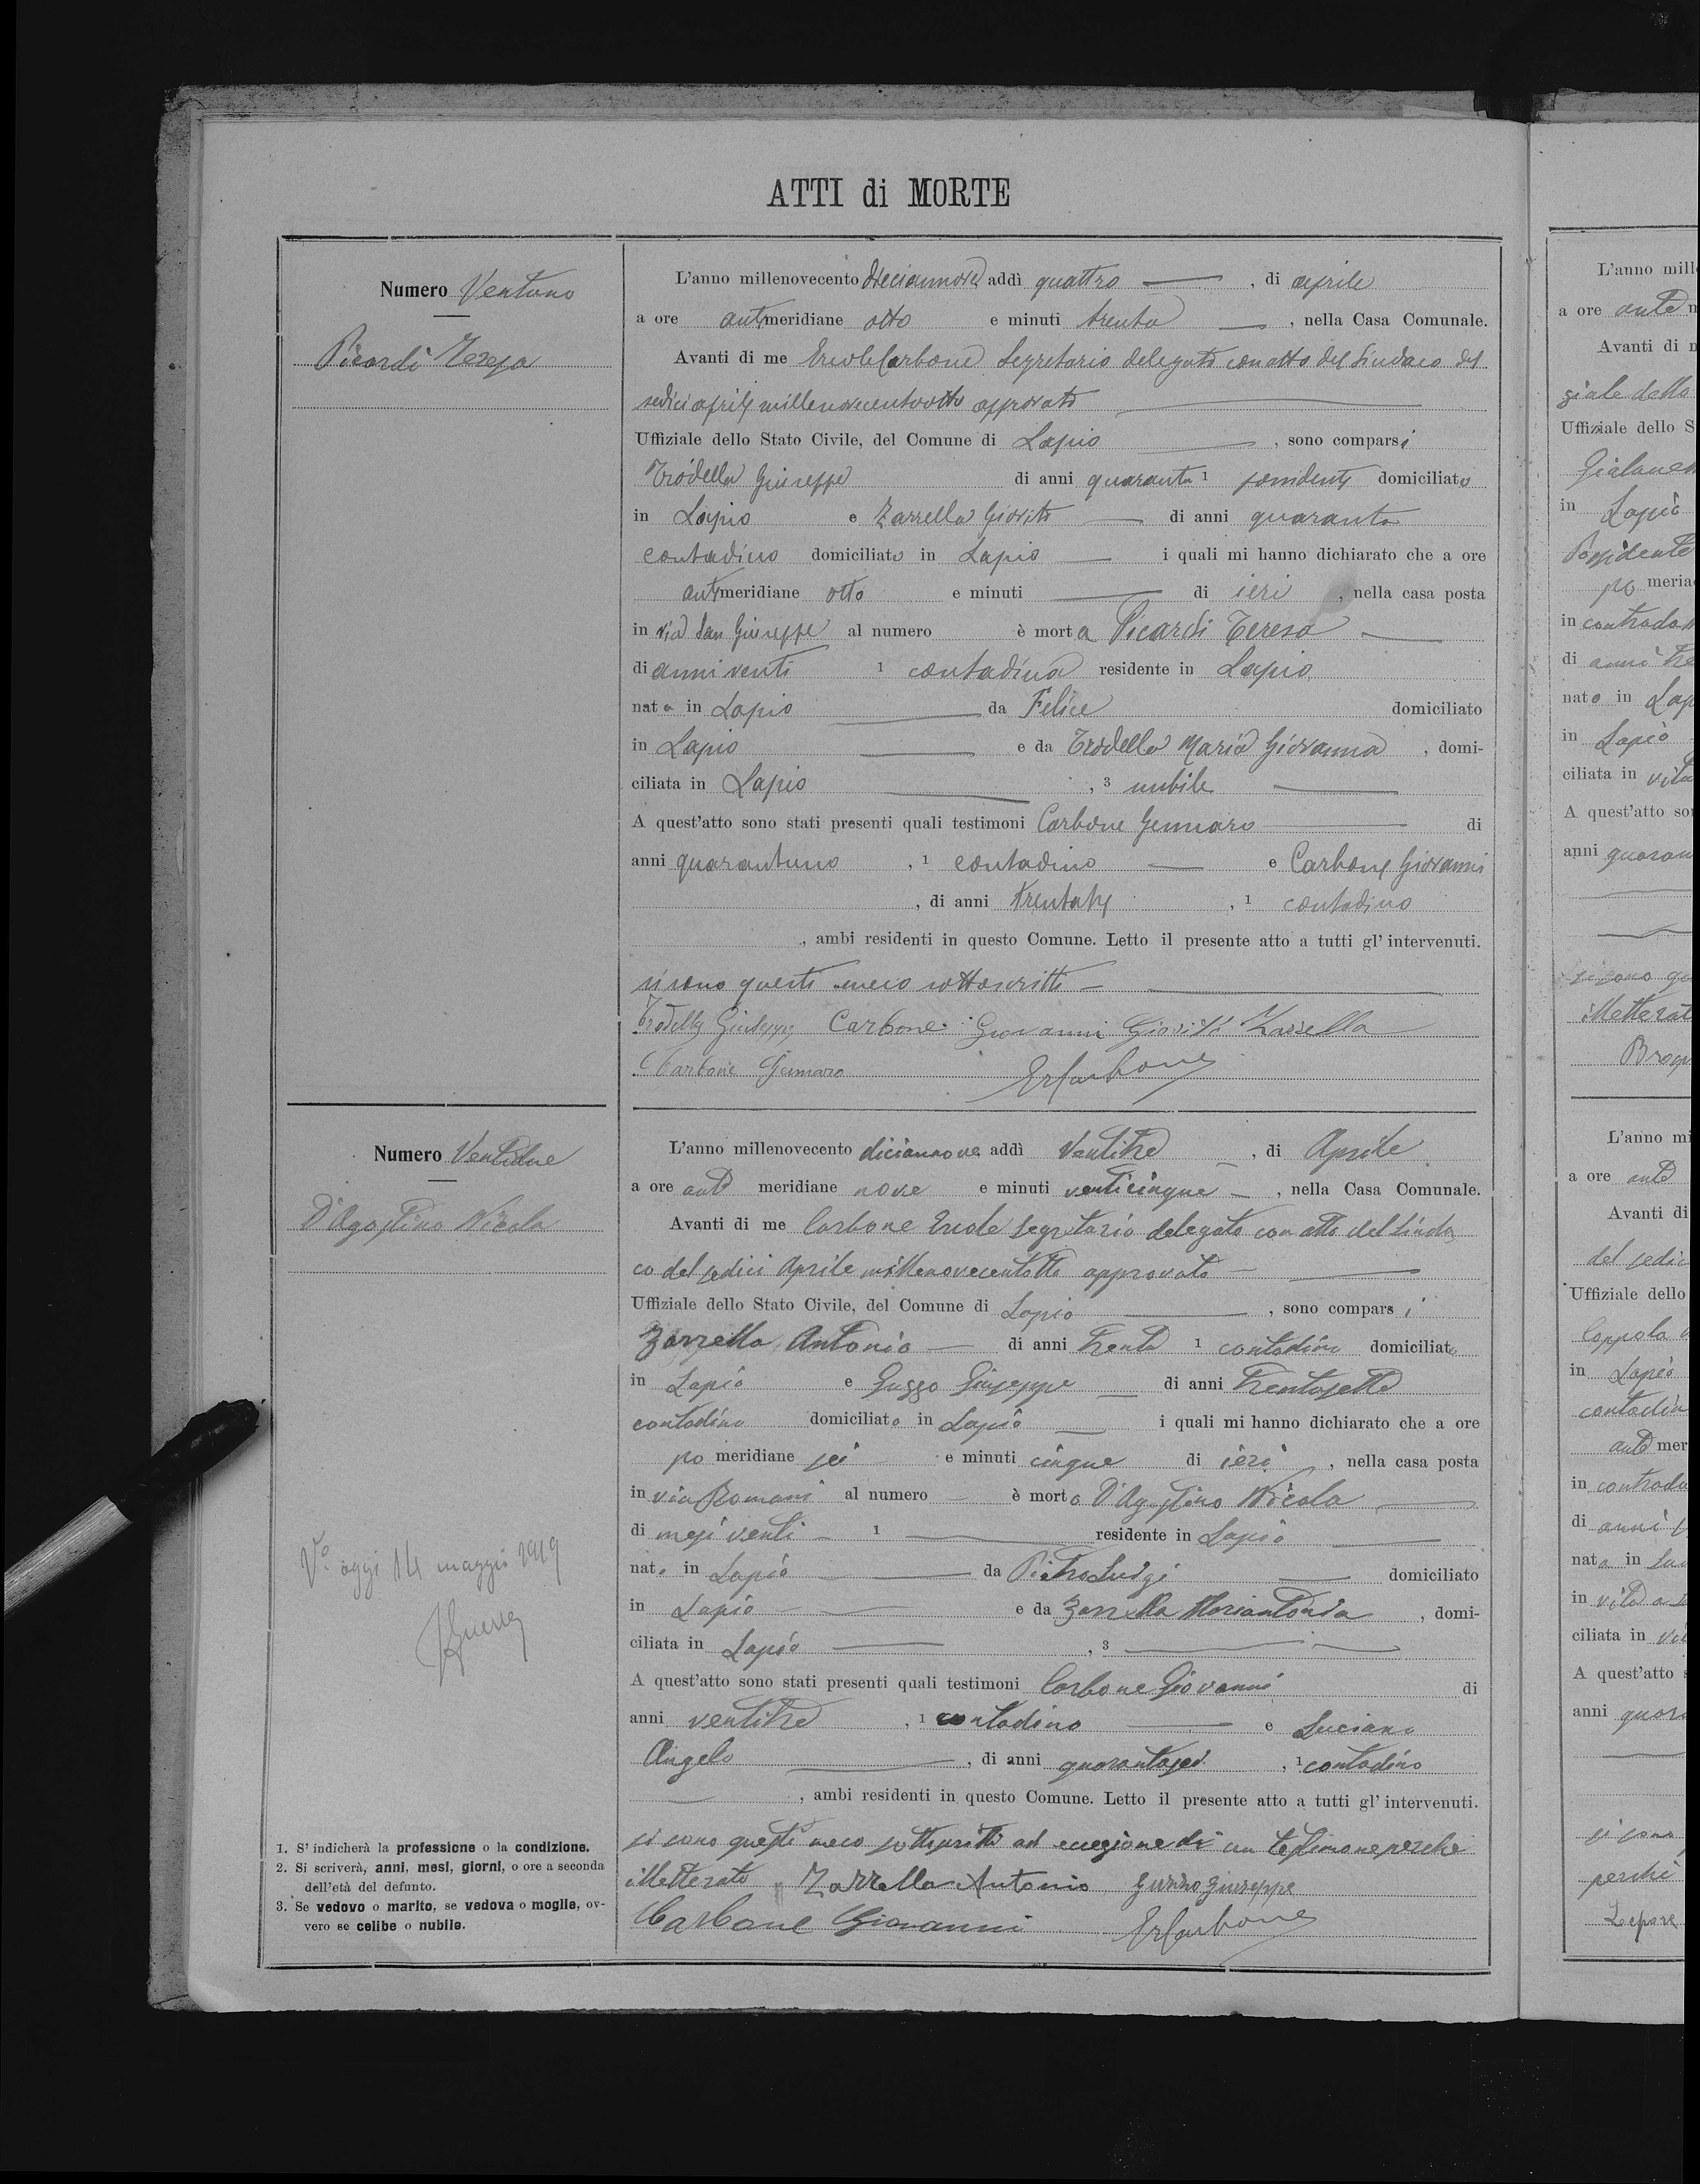 ATTI di MORTE
Numero Ventuno
Picardi Teresa
L'anno millenovecento dieciannove addì quattro, di aprile
a ore antimeridiane otto e minuti trenta, nella Casa Comunale.
Avanti di me Ercole Carbone Segretario delegato con atto del Sindaco del
sedici aprile millenovecentootto approvato
Uffiziale dello Stato Civile, del Comune di Lapio, sono comparsi
Trodella Giuseppe di anni quaranta 1 possidente domiciliato
in Lapio e Zarrella Giovito di anni quaranta
contadino domiciliato in Lapio i quali mi hanno dichiarato che a ore
antimeridiane otto e minuti di ieri, nella casa posta
in via San Giuseppe al numero è morta Picardi Teresa
di anni venti 1 contadina residente in Lapio
nata in Lapio da Felice domiciliato
in Lapio e da Trodella Maria Giovanna, domi-
ciliata in Lapio, 3 nubile
A quest'atto sono stati presenti quali testimoni Carbone Gennaro di
anni quarantuno, 1 contadino e Carbone Giovanni
, di anni trentatre, 1 contadino
, ambi residenti in questo Comune. Letto il presente atto a tutti gl'intervenuti.
si sono questi meco sottoscritti
Trodella Giuseppe Carbone Giovanni Giovito Zarrella
Carbone Gennaro ErCarbone
Numero Ventidue
D'Agostino Nicola
L'anno millenovecento diciannove addì Ventitre, di Aprile
a ore ante meridiane nove e minuti venticinque, nella Casa Comunale.
Avanti di me Carbone Ercole Segretario delegato con atto del Sinda
co del sedici Aprile millenovecentotto approvato
Uffiziale dello Stato Civile, del Comune di Lapio, sono comparsi
Zarrella Antonio di anni Trenta 1 contadino domiciliato
in Lapio e Guzzo Giuseppe di anni Trentasette
contadino domiciliato in Lapio i quali mi hanno dichiarato che a ore
po meridiane sei e minuti cinque di ieri, nella casa posta
in via Romani al numero è morto D'Agostino Nicola
di mesi venti 1 residente in Lapio
nato in Lapio da Pietro Luigi domiciliato
in Lapio e da Zarrella Mariantonia, domi-
ciliata in Lapio, 3
A quest'atto sono stati presenti quali testimoni Carbone Giovanni di
anni ventitre, 1 contadino e Luciano
Angelo, di anni quarantasei, 1 contadino
, ambi residenti in questo Comune. Letto il presente atto a tutti gl'intervenuti.
si sono questi meco sottoscritti ad eccezione di un testimone perche
illetterato Zarrella Antonio Guzzo Giuseppe
Carbone Giovanni ErCarbone
Vº oggi 14 maggio 1919
1. S'indicherà la professione o la condizione.
2. Si scriverà, anni, mesi, giorni, o ore a seconda
dell'età del defunto.
3. Se vedovo o marito, se vedova o moglie, ov-
vero se celibe o nubile.
L'anno mill
a ore ante m
Avanti di m
Uffiziale dello S
in Lapio
Possidente
po meria
in contrada
di anni
nato in Lap
in Lapio
ciliata in
A quest'atto so
anni quaran
L'anno mi
a ore ante
Avanti di
del sedic
Uffiziale dello
Coppola
in Lapio
contadin
ante mer
in contrada
di anni
nata in
in
ciliata in
A quest'atto s
anni quara
si sono
perchè
Lepore